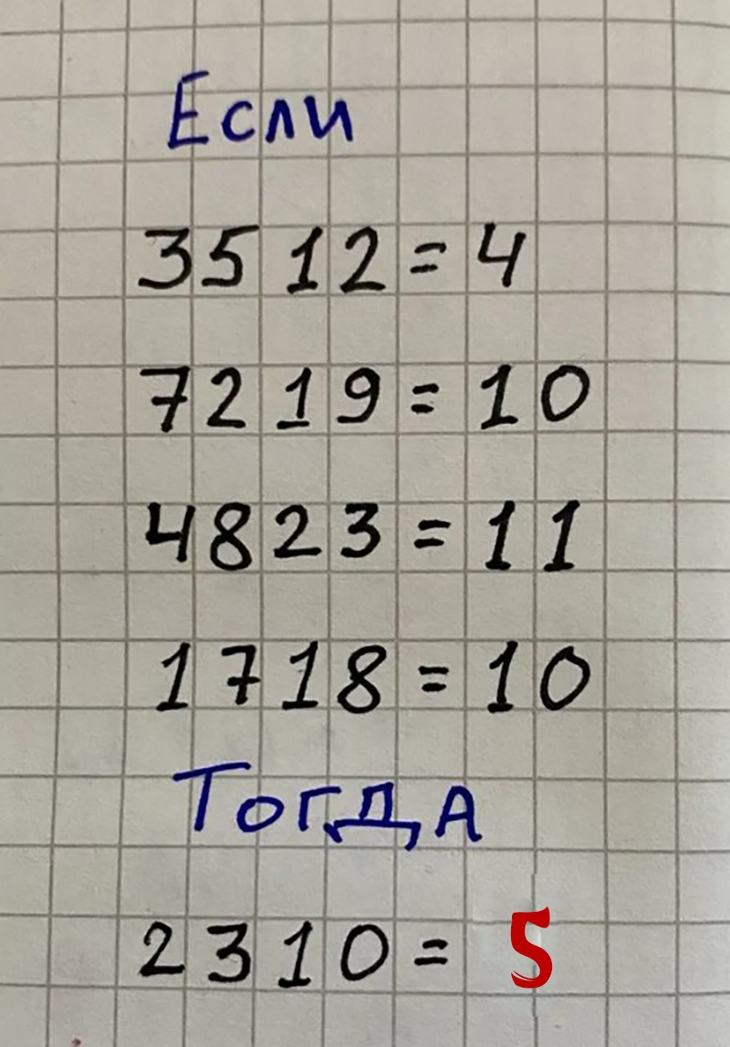 Если
3512=4
7219=10
4823=11
1718=10
Тогда
2310= 5